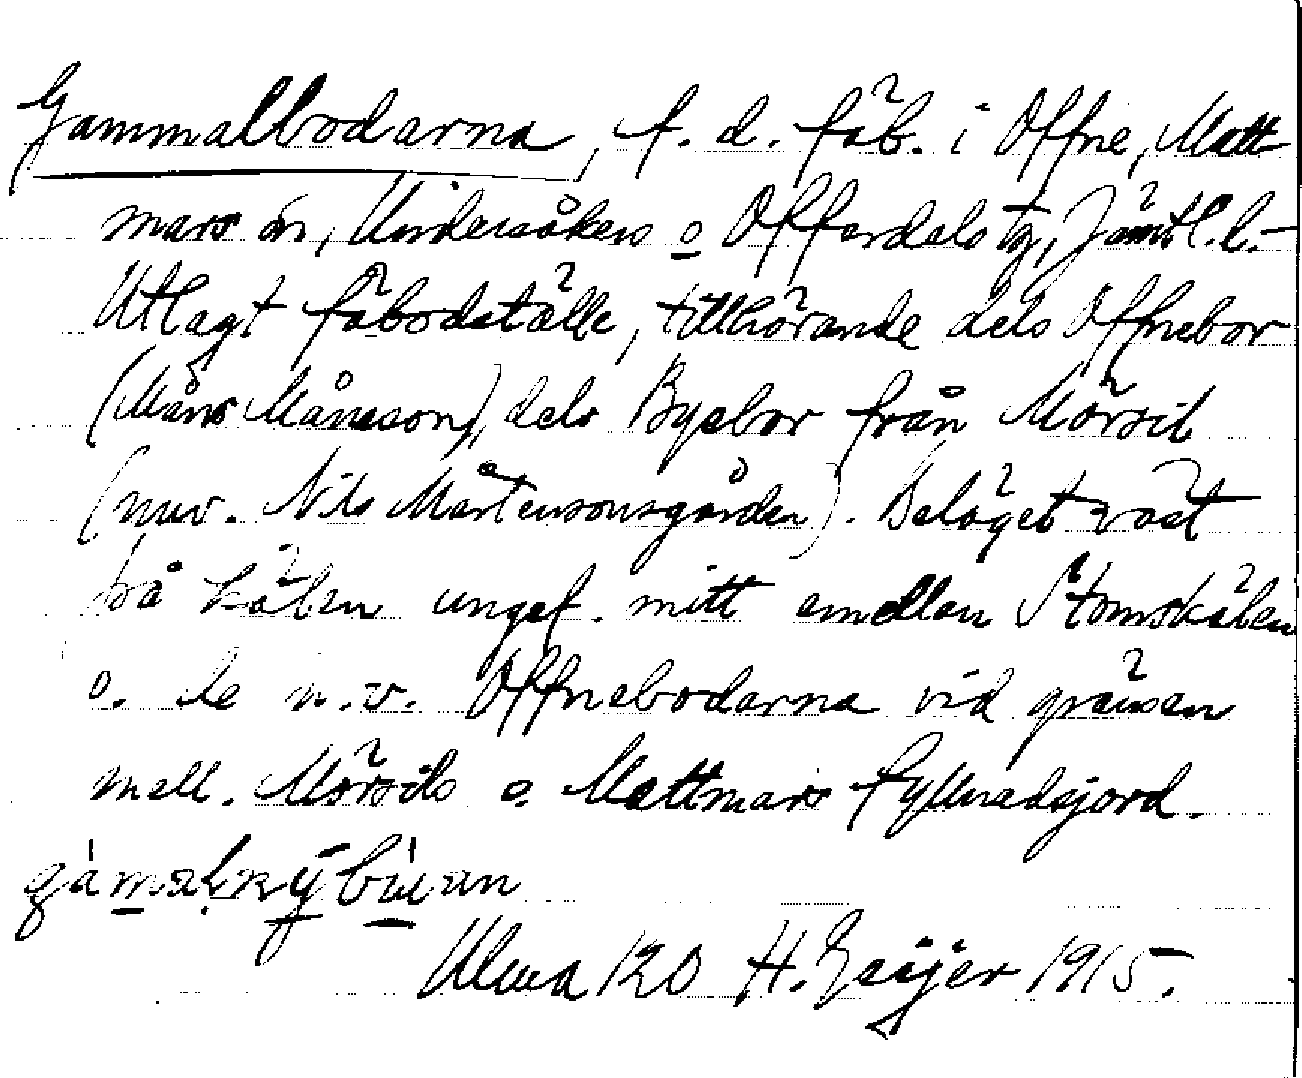 Gammalbodarna, f. d. fäb. i Offne, Matt-
mars sn, Undersåkers o Offerdals tg, Jämtl. l.-
Utlagt fäbodställe, tillhörande dels Offnebor
(Måns Månsson), dels Byebor från Mörsil
(nuv. Nils Mårtensonsgården). Beläget väst
på kölen ungef. mitt emellan Stomskälen
o. de n.v. Offnebodarna vid gränsen
mell. Mörsils o. Mattmars fyllnadsjord.
Ulma 120 H. Geijer 1915.